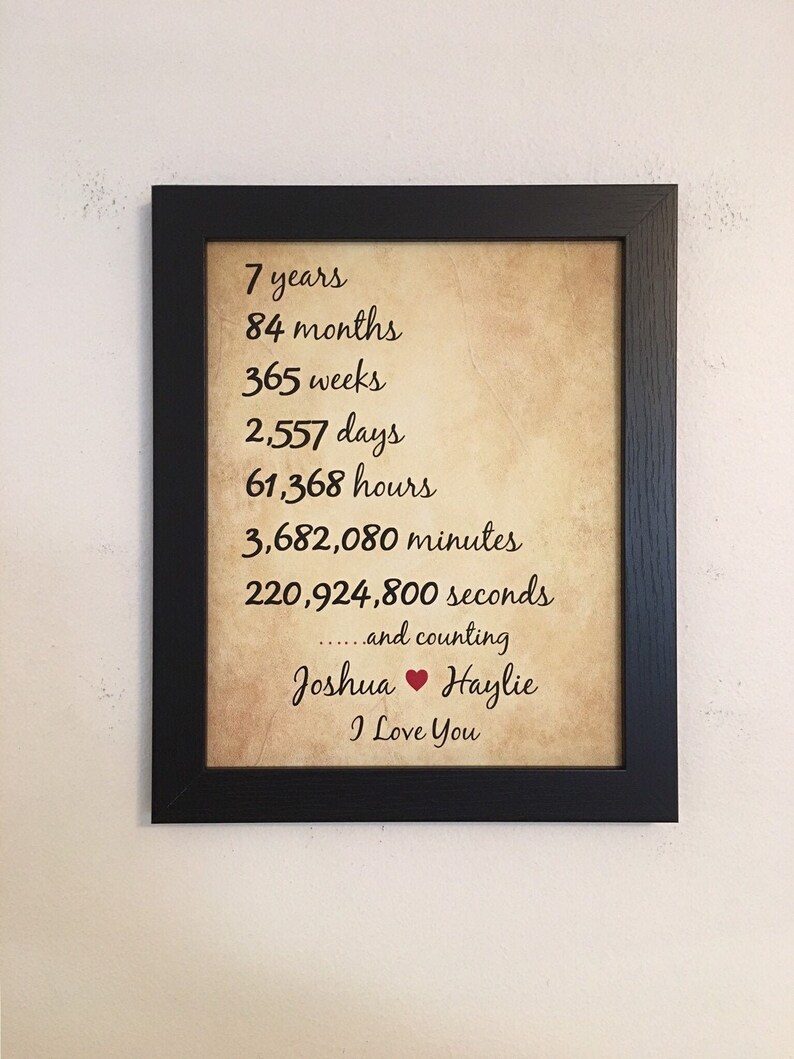 7 years
84 months
365 weeks
2,557 days
61,368 hours
3,682,080 minutes
220,924,800 seconds
......and counting
Joshua ♥ Haylie
I Love You